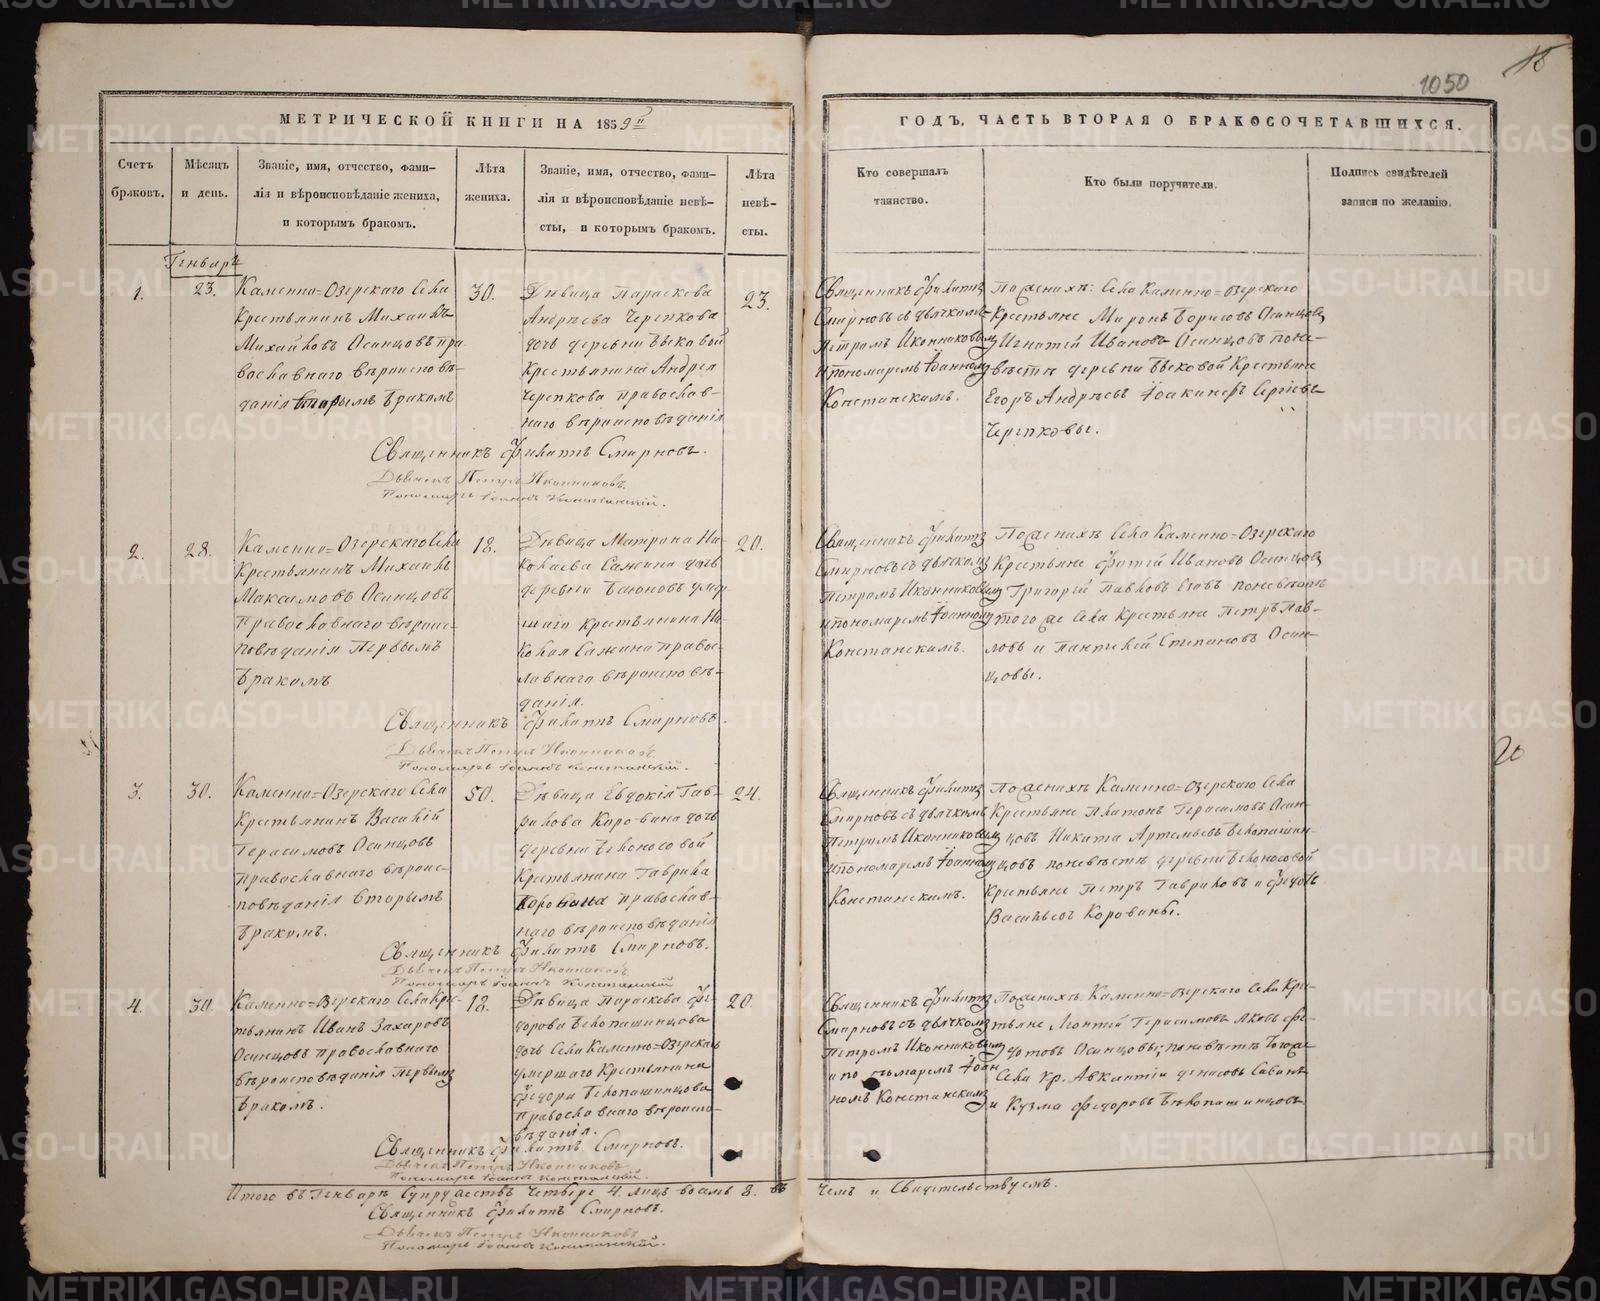 1050
МЕТРИЧЕСКОЙ КНИГИ НА 1859й
ГОДЪ, ЧАСТЬ ВТОРАЯ О БРАКОСОЧЕТАВШИХСЯ.
Счетъ
браковъ.
Мѣсяцъ
и день.
Званіе, имя, отчество, фами-
лія и вѣроисповѣданіе жениха,
и которымъ бракомъ.
Лѣта
жениха.
Званіе, имя, отчество, фами-
лія и вѣроисповѣданіе невѣ-
сты, и которымъ бракомъ.
Лѣта
невѣ-
сты.
Кто совершалъ
таинство.
Кто были поручители.
Подпись свидѣтелей
записи по желанію.
Генварь
1.
23.
Каменно=Озерскаго Села
Крестьянинъ Михаилъ
Михайловъ Осинцовъ пра-
вославнаго вѣроисповѣ-
данія вторымъ бракомъ
30.
Дѣвица Параскева
Андрѣева Черепкова
дочь деревни Быковой
Крестьянина Андрея
Черепкова православ-
наго вѣроисповѣданія
23.
Священникъ Филиппъ
Смирновъ съ дьячкомъ
Петромъ Иконниковымъ
и пономаремъ Іоанномъ
Констанскимъ.
По женихѣ: Села Каменно=Озерскаго
Крестьяне Миронъ Борисовъ Осинцовъ,
Игнатій Ивановъ Осинцовъ по не-
вѣстѣ деревни Быковой Крестьяне
Егоръ Андрѣевъ Іоакимъ Сергіевъ
Черепковы.
Священникъ Филиппъ Смирновъ.
Дьячекъ Петръ Иконниковъ.
Пономарь Іоаннъ Констанскій.
2.
28.
Каменно=Озерскаго Села
Крестьянинъ Михаилъ
Максимовъ Осинцовъ
Православнаго вѣроис-
повѣданія Первымъ
бракомъ
18.
Дѣвица Матрона Ни-
колаева Санина дочь
деревни умер-
шаго крестьянина Ни-
колая Санина право-
славнаго вѣроисповѣ-
данія.
20.
Священникъ Филиппъ
Смирновъ съ дьячкомъ
Петромъ Иконниковымъ
и пономаремъ Іоанномъ
Констанскимъ.
По женихѣ Села Каменно=Озерскаго
Крестьяне Ивановъ Осинцовъ,
Григорій Павловъ по невѣстѣ
того же Села Крестьяне Петръ Пав-
ловъ и Пантелей Степановъ Осин-
цовы.
Священникъ Филиппъ Смирновъ.
Дьячекъ Петръ Иконниковъ.
Пономарь Іоаннъ Констанскій.
3.
30.
Каменно=Озерскаго Села
Крестьянинъ Василій
Герасимовъ Осинцовъ
православнаго вѣроис-
повѣданія вторымъ
бракомъ.
50.
Дѣвица Евдокія Гав-
рилова Коровина дочь
деревни Белоносовой
Крестьянина Гаврила
Коровина православ-
наго вѣроисповѣданія
24.
Священникъ Филиппъ
Смирновъ съ дьячкомъ
Петромъ Иконниковымъ
и пономаремъ Іоанномъ
Констанскимъ.
По женихѣ Каменно=Озерскаго Села
Крестьяне Платонъ Герасимовъ Осин-
цовъ Никита Артемьевъ Белопашин-
цовъ по невѣстѣ деревни Белоносовой
Крестьяне Петръ Гавриловъ и Федоръ
Васильевъ Коровины.
Священникъ Филиппъ Смирновъ.
Дьячекъ Петръ Иконниковъ.
Пономарь Іоаннъ Констанскій
4.
30.
Каменно=Озерскаго Села Кре-
стьянинъ Иванъ Захаровъ
Осинцовъ православнаго
вѣроисповѣданія первымъ
бракомъ.
18.
Дѣвица Параскева Фе-
дорова Белопашинцова
дочь Села Каменно=Озерскаго
умершаго Крестьянина
Федора Белопашинцова
Православнаго вѣроиспо-
вѣданія.
20.
Священникъ Филиппъ
Смирновъ съ дьячкомъ
Петромъ Иконниковымъ
и пономаремъ Іоан-
номъ Констанскимъ
По женихѣ Каменно=Озерскаго Села Кре-
стьяне Леонтій Герасимовъ Яковъ Фе-
дотовъ Осинцовы; по невѣстѣ тогоже
Села Кр. Денисовъ
и Кузма Федоровъ Белопашинцовъ
Священникъ Филиппъ Смирновъ.
Дьячекъ Петръ Иконниковъ
Пономарь Іоаннъ Констанскій.
Итого въ Генварѣ Супружествъ Четыре 4. лицъ восемь 8. въ чемъ и Свидетельствуемъ.
Священникъ Филиппъ Смирновъ.
Дьячекъ Петръ Иконниковъ
Пономарь Іоаннъ Констанскій.
METRIKI.GASO-URAL.RU